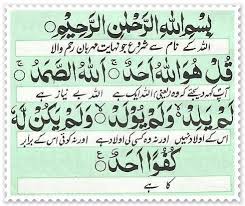 بِسْمِ اللهِ الرَّحْمٰنِ الرَّحِيْمِ
اللہ کے نام سے شروع جو نہایت مہربان رحم والا
قُلْ هُوَ اللهُ اَحَدٌ ۚ اَللهُ الصَّمَدُ ۚ
آپ کہہ دیجئے کہ وہ یعنی اللہ ایک ہے اللہ بے نیاز ہے
لَمْ يَلِدْ ۙ وَلَمْ يُوْلَدْ ۙ وَلَمْ يَكُنْ لَّهٗ
اس کے اولاد نہیں اور نہ وہ کسی کی اولاد ہے اور نہ کوئی اس کے برابر
كُفُوًا اَحَدٌ
کا ہے